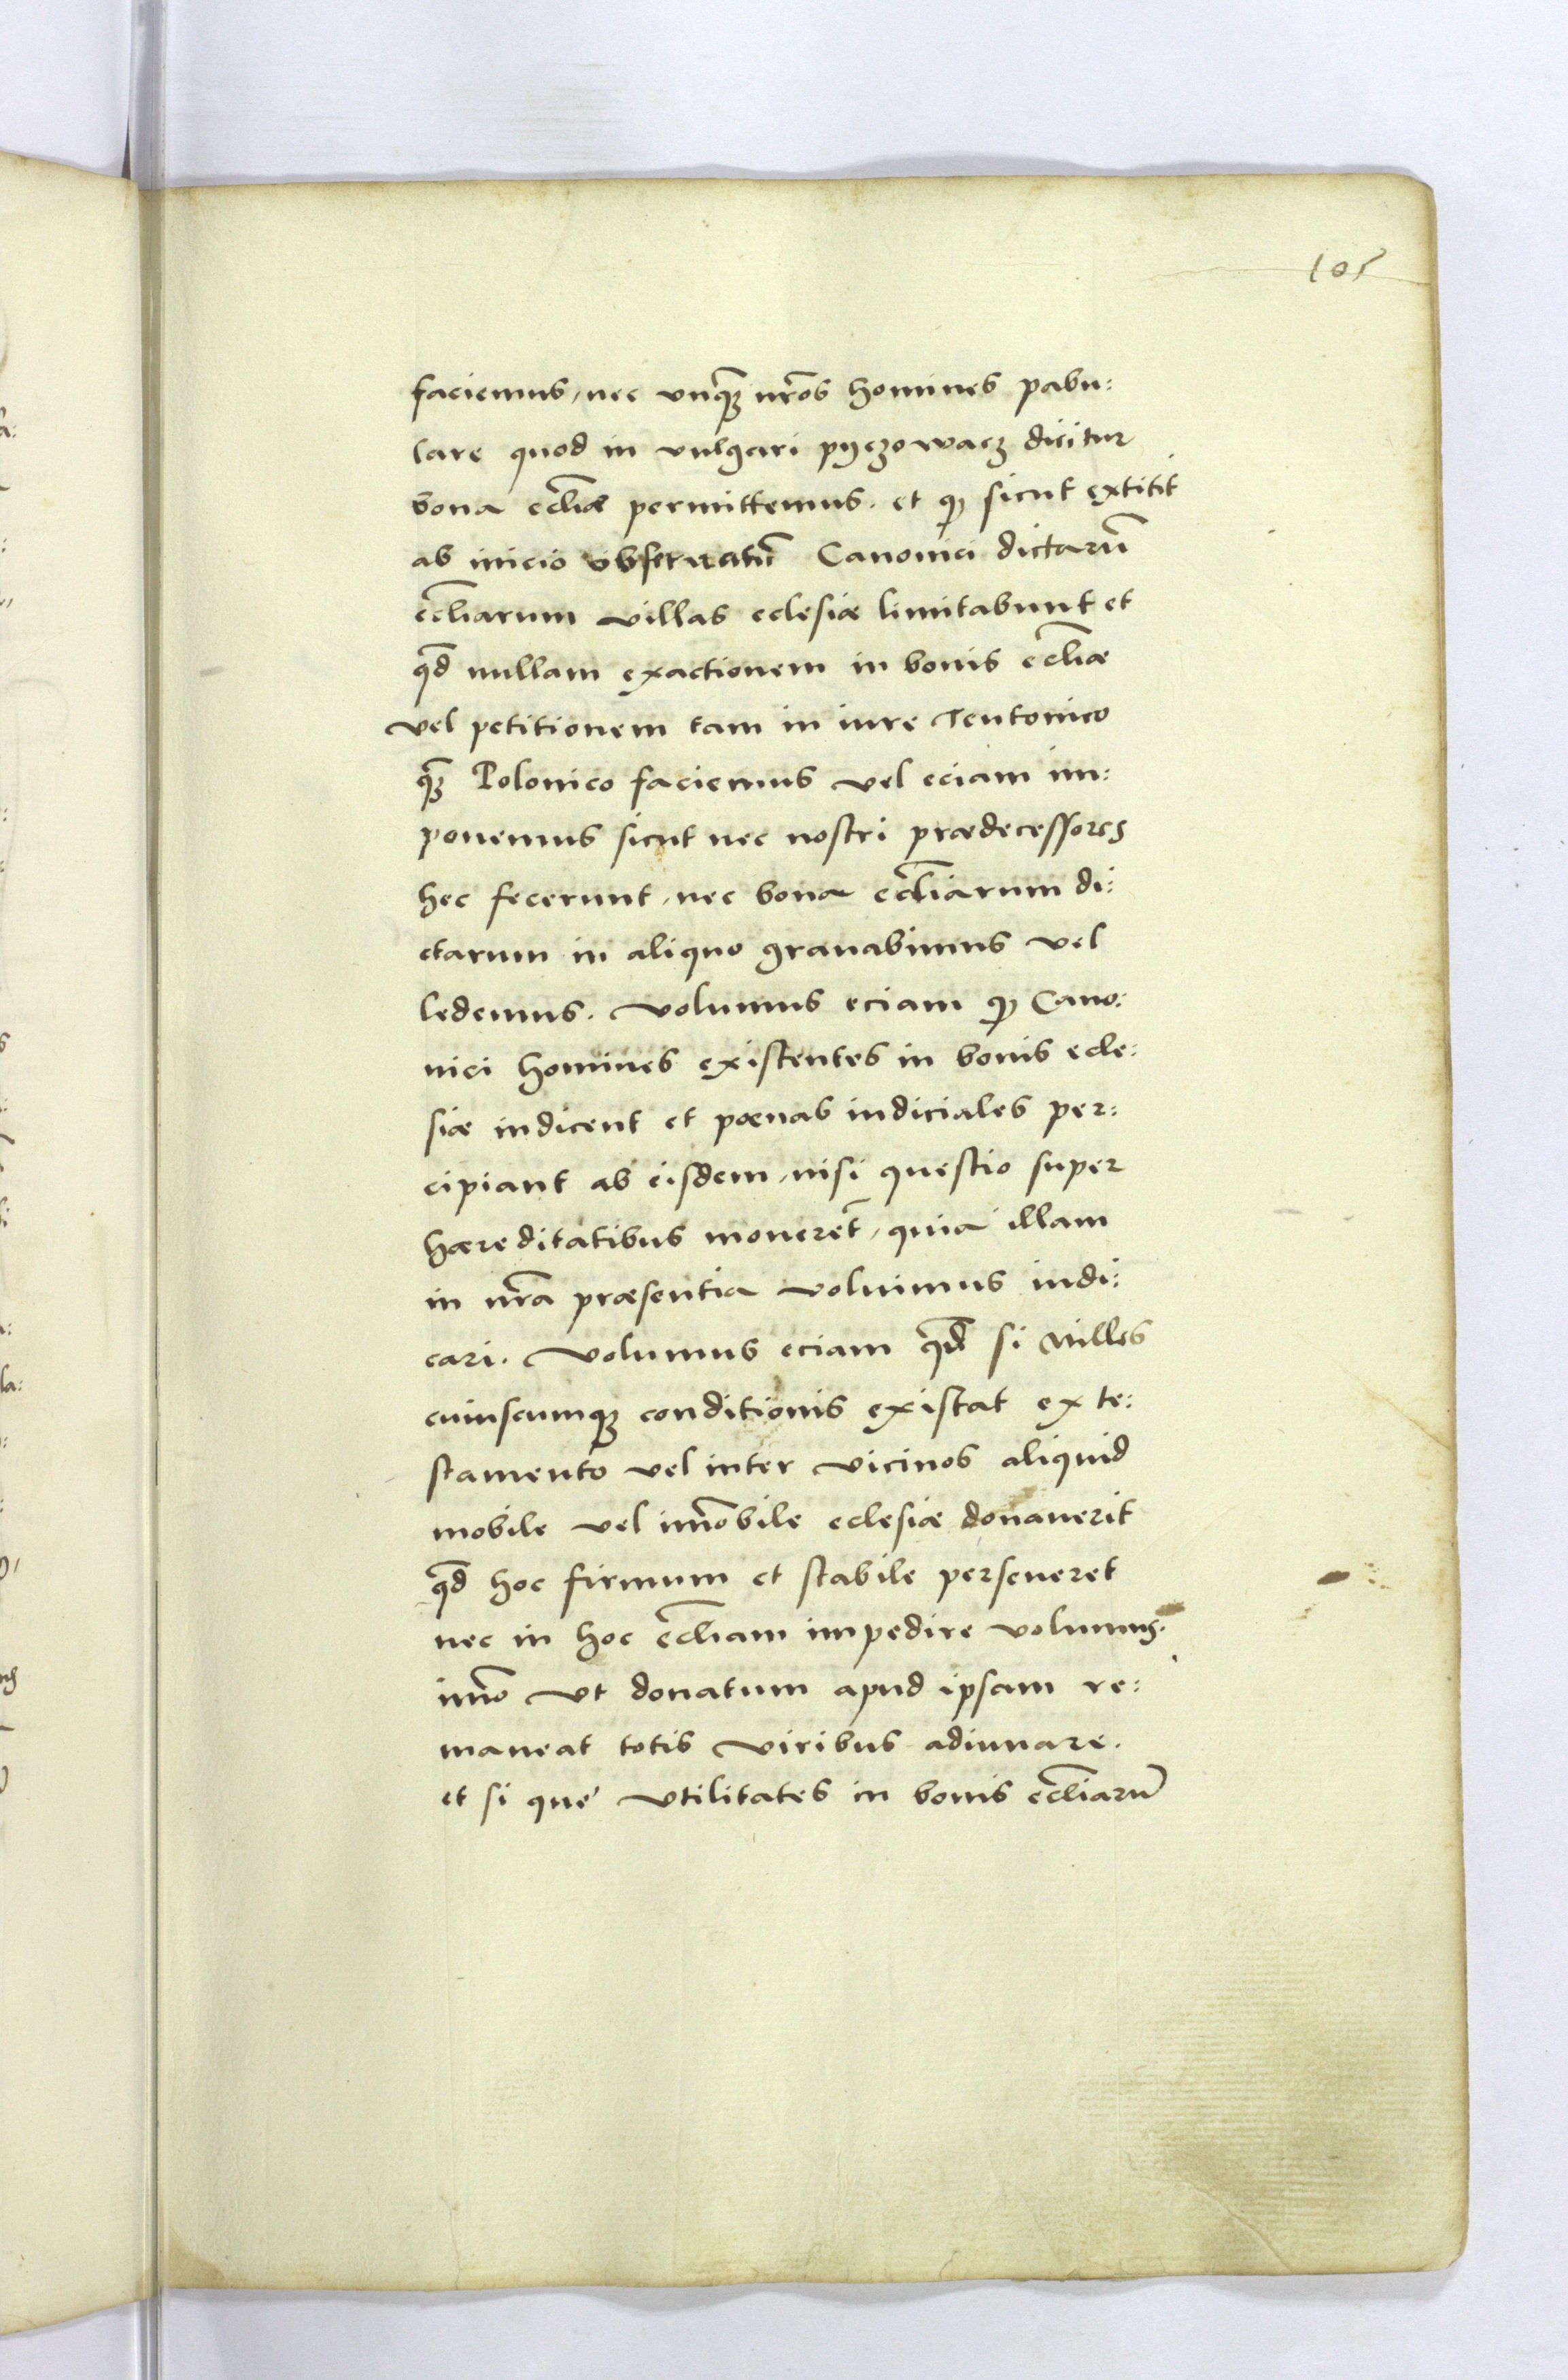 105
faciemus, nec vnq̃ȝ nr̃os homines pabu:
lare quod in vulgari pyczowacz dicitur
bona ecl̃iæ permittemus. et qꝫ sicut extitit
ab inicio obseruatũ Canonici dictarũ
ecl̃iarum villas eclesiæ limitabunt et
qd̃ nullam exactionem in bonis ecl̃iæ
vel petitionem tam in iure Teutonico
q̃ȝ Polonico faciemus vel eciam im:
ponemus sicut nec nostri prædecessores
hec fecerunt, nec bona ecl̃iarum di:
ctarum in aliquo grauabimus vel
ledemus. Volumus eciam qꝫ Cano:
nici homines existentes in bonis ecle:
siæ iudicent et pœnas iudiciales per:
cipiant ab eisdem, nisi questio super
hæreditatibus moueret̃, quia illam
in nr̃a præsentia voluimus iudi:
cari. Volumus eciam qd̃ si Milles
cuiuscumqȝ conditionis existat ex te:
stamento vel inter vicinos aliquid
mobile vel im̃obile eclesiæ donauerit
qd̃ hoc firmum et stabile perseueret
nec in hoc ecl̃iam impedire volumus.
im̃o vt donatum apud ipsam re:
maneat totis viribus adiuuare.
et si que vtilitates in bonis ecl̃iarũ